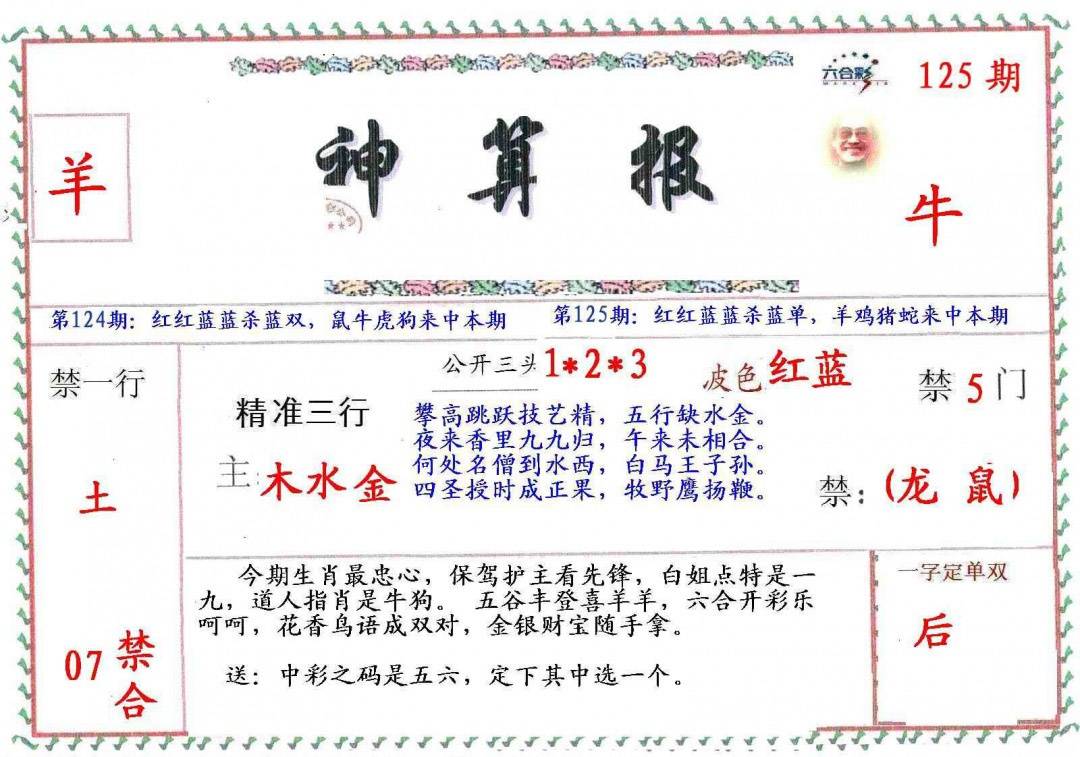 六合彩
125 期
羊
神算报
牛
第124期：红红蓝蓝杀蓝双，鼠牛虎狗来中本期
第125期：红红蓝蓝杀蓝单，羊鸡猪蛇来中本期
禁一行
土
07 禁合
公开三头 1*2*3
波色 红蓝
精准三行
主：木水金
攀高跳跃技艺精，五行缺水金。
夜来香里九九归，午来未相合。
何处名僧到水西，白马王子孙。
四圣授时成正果，牧野鹰扬鞭。
禁 5 门
禁：(龙 鼠)
今期生肖最忠心，保驾护主看先锋，白姐点特是一
九，道人指肖是牛狗。 五谷丰登喜羊羊，六合开彩乐
呵呵，花香鸟语成双对，金银财宝随手拿。
送：中彩之码是五六，定下其中选一个。
一字定单双
后